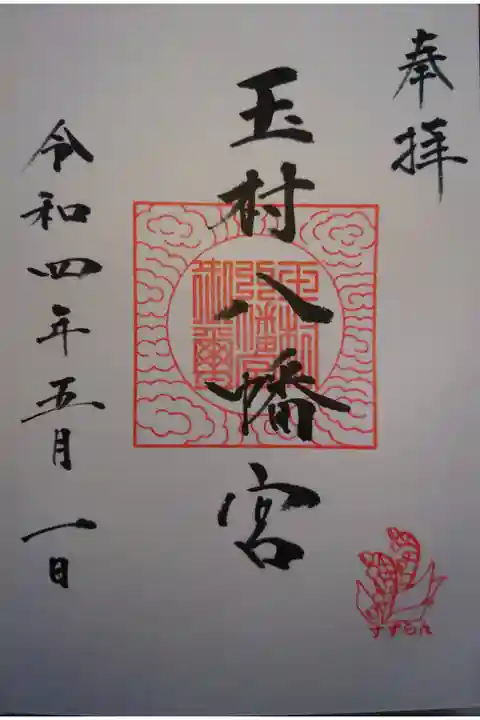 奉拝
玉村八幡宮
令和四年五月一日
すずらん